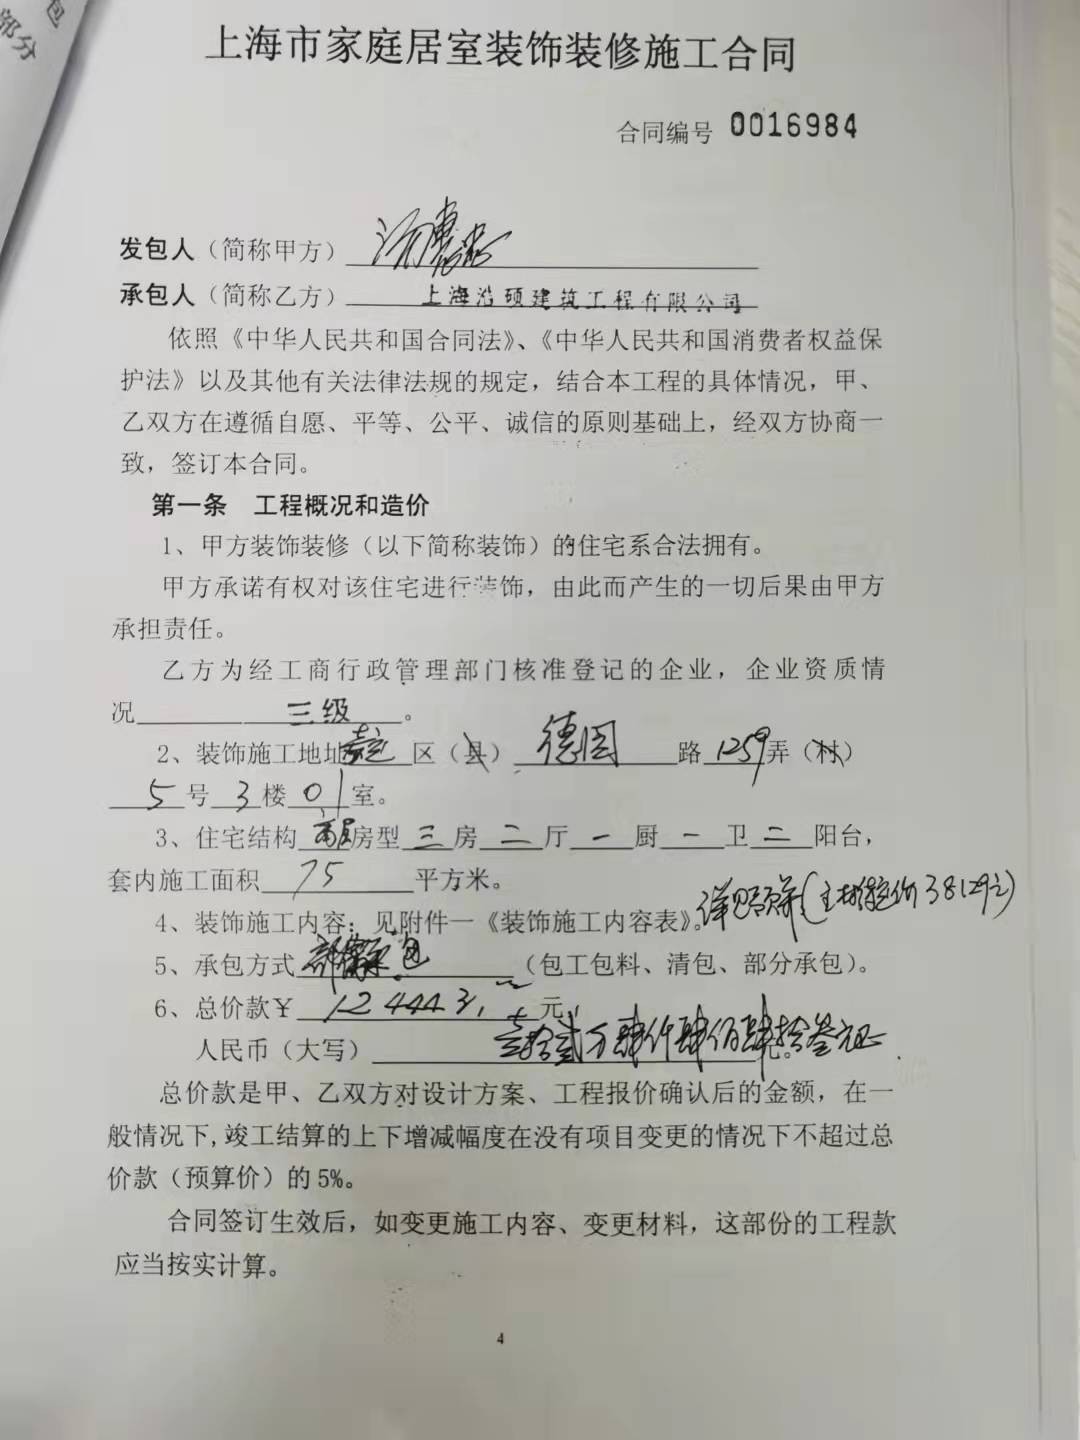 包
部分
上海市家庭居室装饰装修施工合同
合同编号 0016984
发包人（简称甲方）
承包人（简称乙方） 上海浩硕建筑工程有限公司
依照《中华人民共和国合同法》、《中华人民共和国消费者权益保
护法》以及其他有关法律法规的规定，结合本工程的具体情况，甲、
乙双方在遵循自愿、平等、公平、诚信的原则基础上，经双方协商一
致，签订本合同。
第一条 工程概况和造价
1、甲方装饰装修（以下简称装饰）的住宅系合法拥有。
甲方承诺有权对该住宅进行装饰，由此而产生的一切后果由甲方
承担责任。
乙方为经工商行政管理部门核准登记的企业，企业资质情
况 三级 。
2、装饰施工地址嘉定区（县） 德园 路 1259 弄（村）
5 号 3 楼 01 室。
3、住宅结构 高层 房型 三 房 二 厅 一 厨 一 卫 二 阳台，
套内施工面积 75 平方米。
4、装饰施工内容：见附件一《装饰施工内容表》。详见预算（主材总价38129元）
5、承包方式 部分承包 （包工包料、清包、部分承包）。
6、总价款￥ 124443. 元，
人民币（大写） 壹拾贰万肆仟肆佰肆拾叁元正 元。
总价款是甲、乙双方对设计方案、工程报价确认后的金额，在一
般情况下,竣工结算的上下增减幅度在没有项目变更的情况下不超过总
价款（预算价）的 5%。
合同签订生效后，如变更施工内容、变更材料，这部份的工程款
应当按实计算。
4